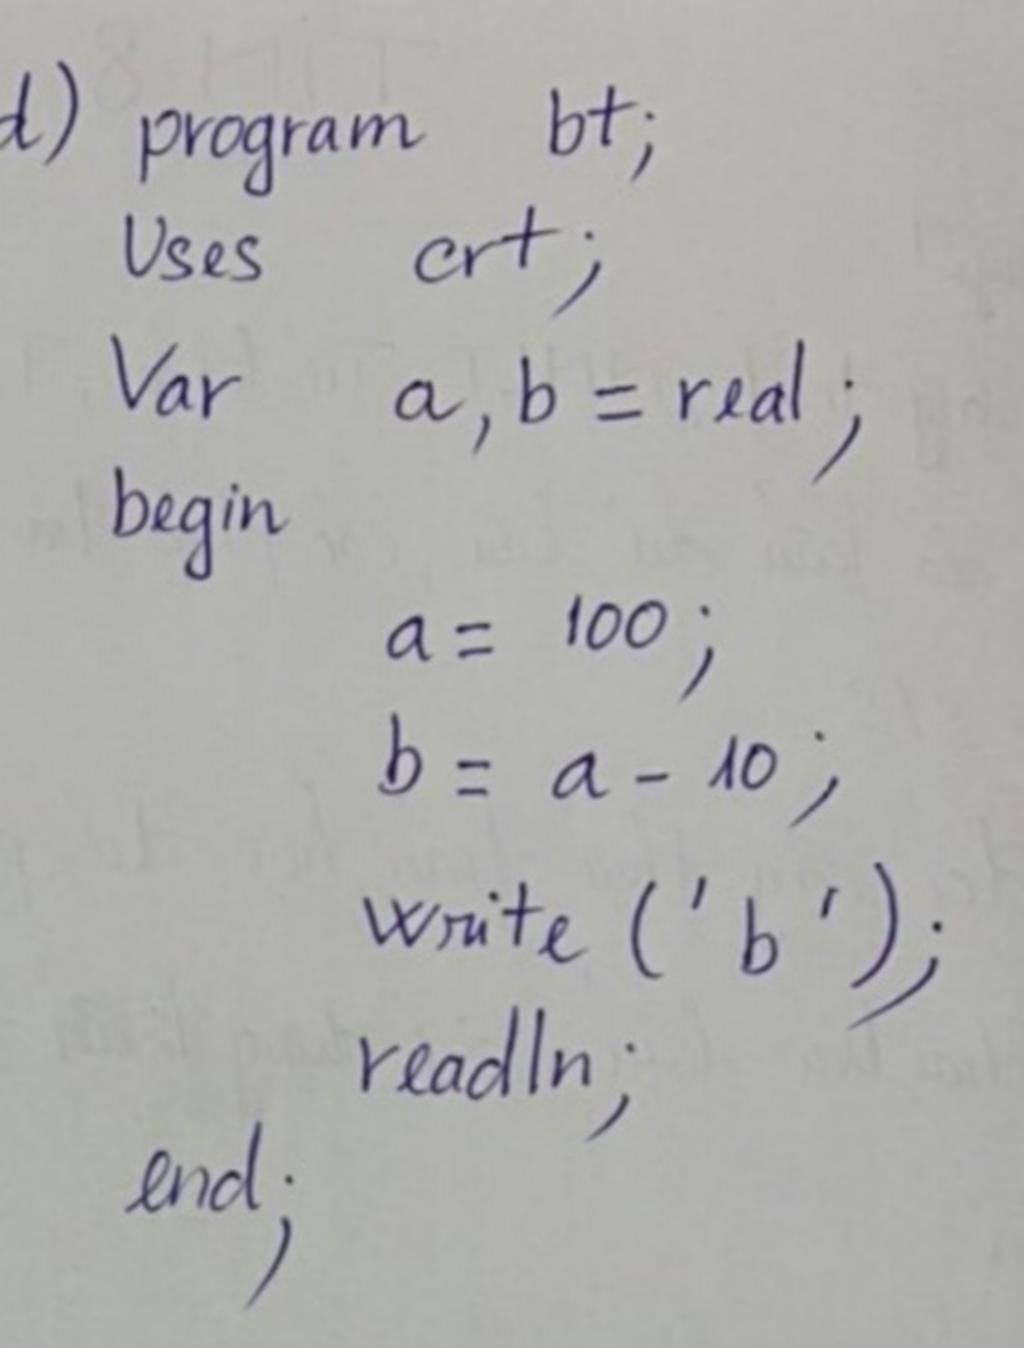 d) program bt;
Uses crt;
Var a, b = real;
begin
a = 100;
b = a - 10;
write ('b');
readln;
end;